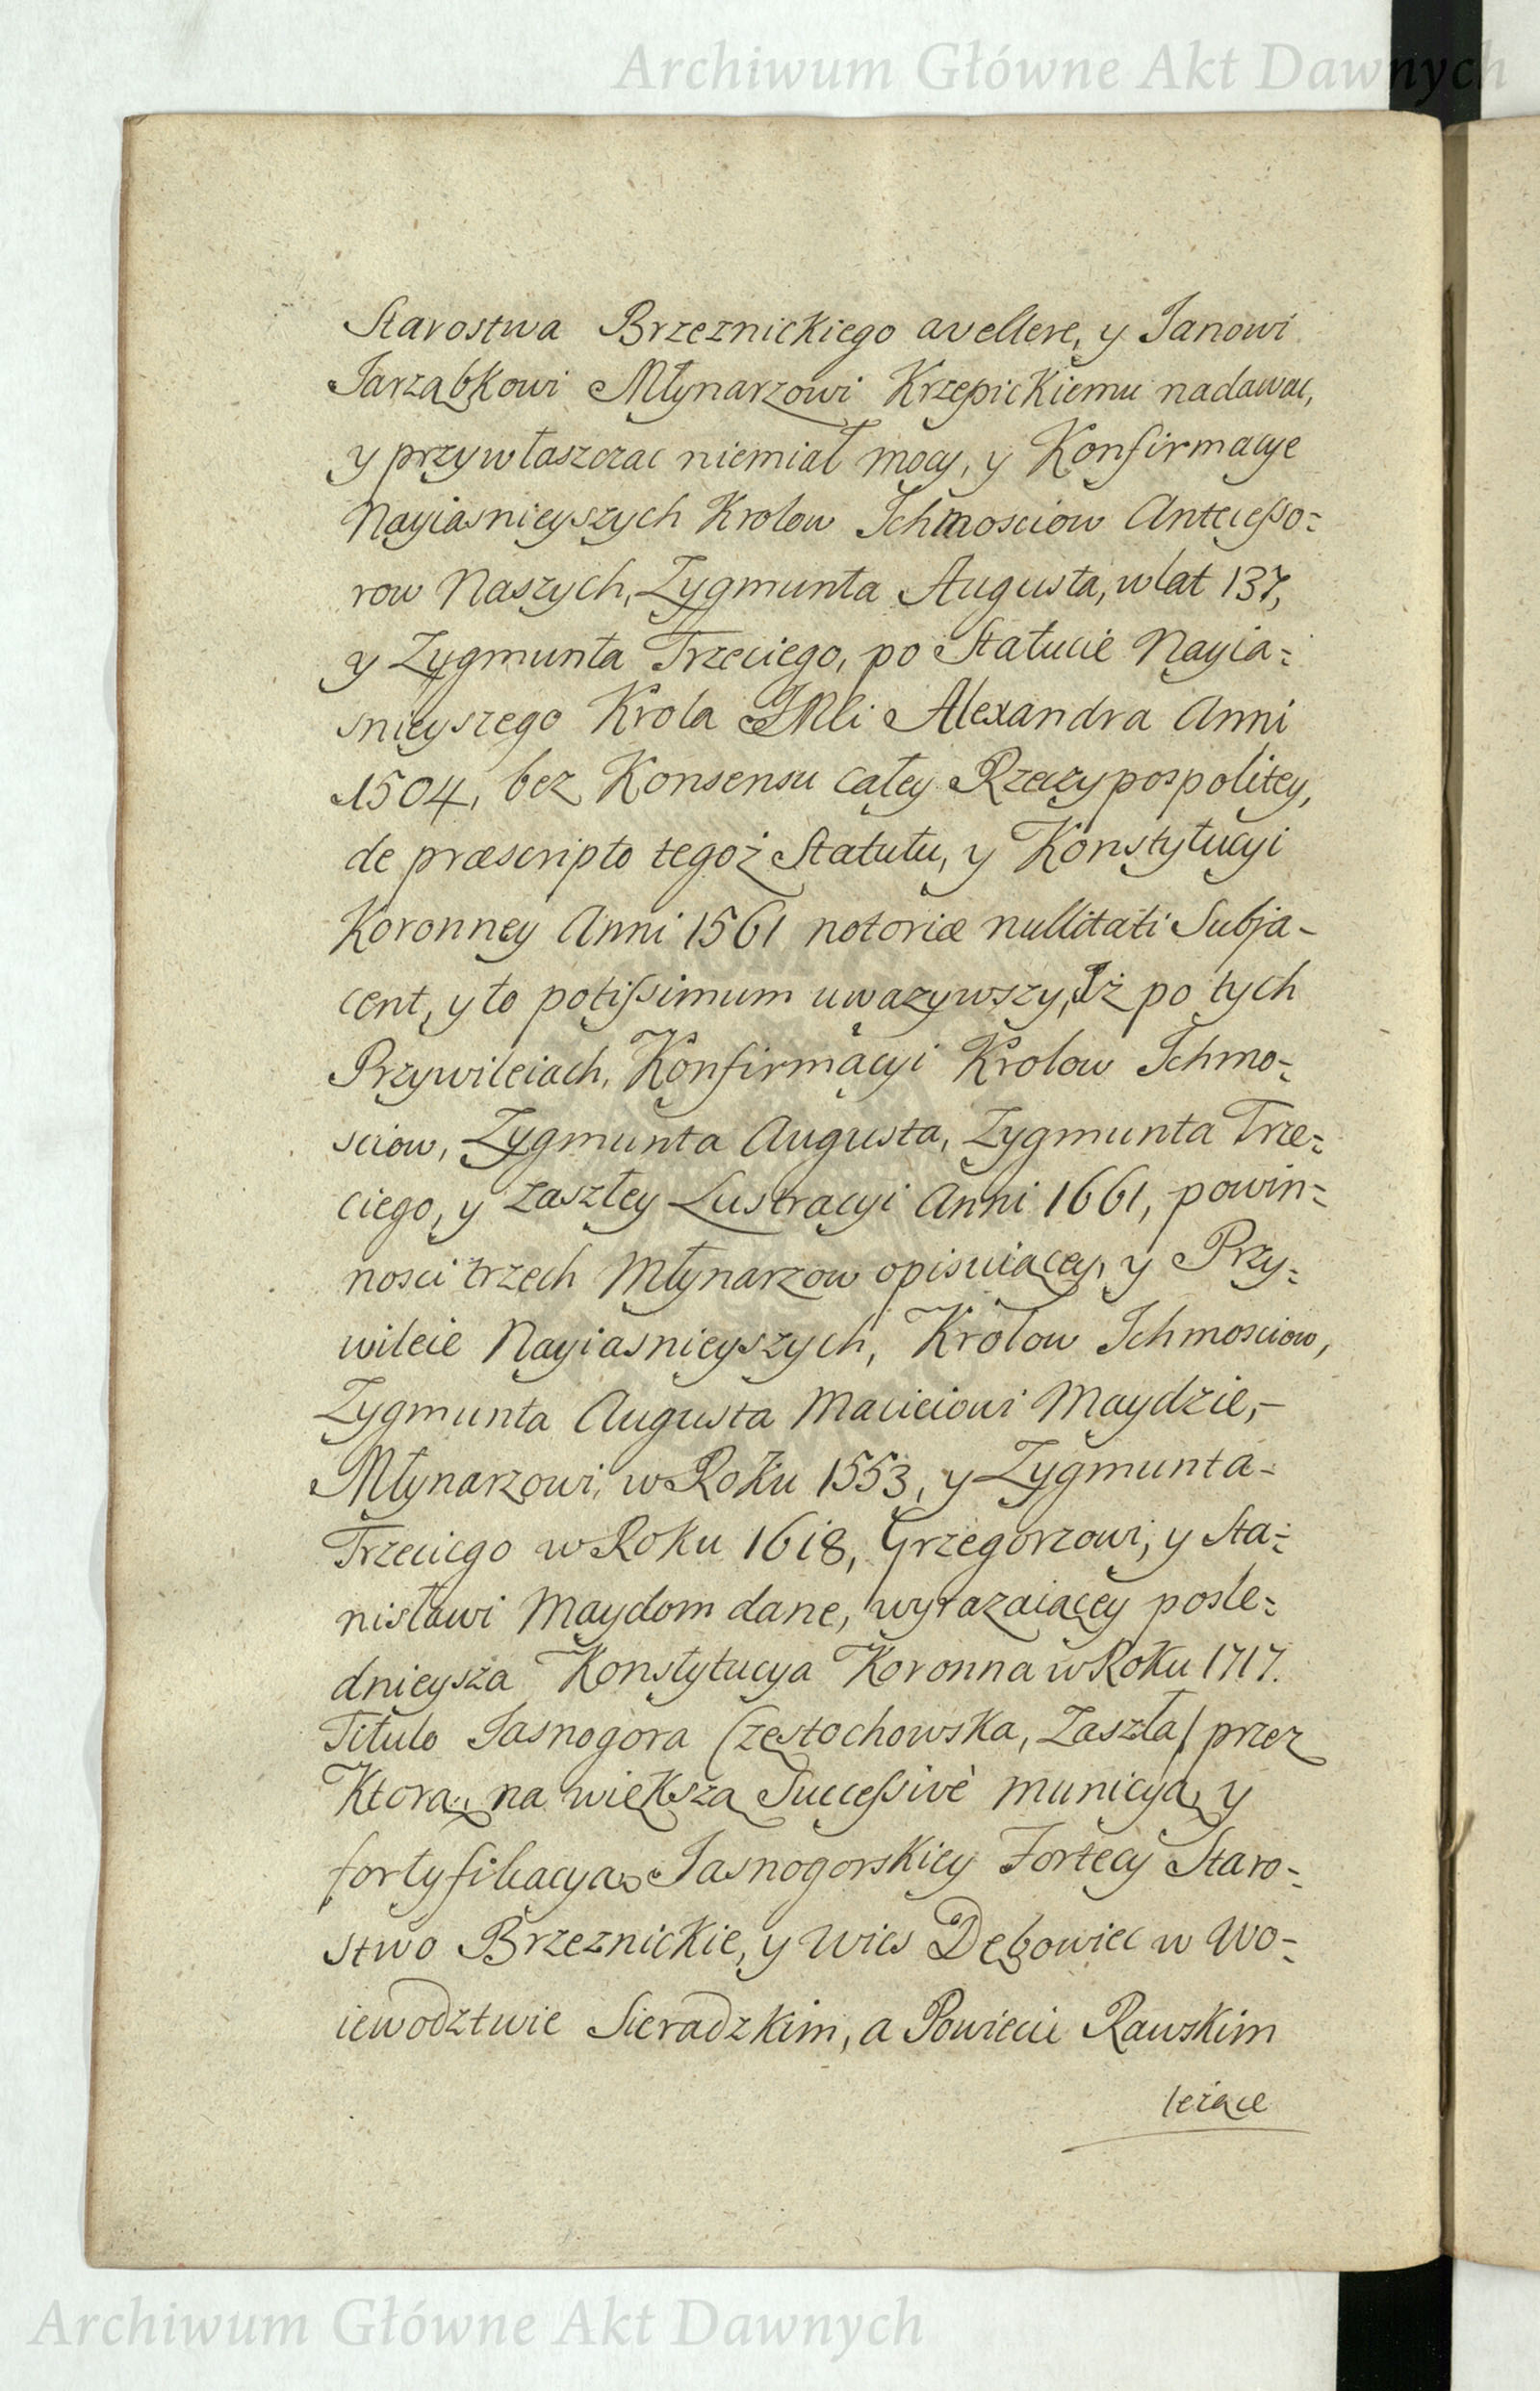 Archiwum Główne Akt Dawnych
Starostwa Brzeznickiego avellere, y Janowi
Jarząbkowi Młynarzowi Krzepickiemu nadawac,
y przywłaszczac niemiał mocy, y Konfirmacye
Nayiasnieyszych Krolow Ichmosciow Antecesso=
row Naszych, Zygmunta Augusta, w lat 137,
y Zygmunta Trzeciego, po Statucie Nayia=
snieyszego Krola JMci Alexandra Anni
1504, bez Konsensu całey Rzeczypospolitey,
de præscripto tegoż Statutu, y Konstytucyi
Koronney Anni 1561 notoriæ nullitati Subja-
cent, y to potissimum uwazywszy, Iż po tych
Przywileiach, Konfirmacyi Krolow Ichmo=
sciow, Zygmunta Augusta, Zygmunta Trze=
ciego, y zaszłey Lustracyi Anni 1661, powin=
nosci trzech Młynarzow opisuiącey, y Przy=
wileie Nayiasnieyszych, Krolow Ichmosciow,
Zygmunta Augusta Macieiowi Maydzie,-
Młynarzowi, w Roku 1553, y Zygmunta-
Trzeciego w Roku 1618, Grzegorzowi, y Sta=
nisławi Maydom dane, wyrazaiącey posle=
dnieysza Konstytucya Koronna w Roku 1717.
Titulo Jasnogora Częstochowska, Zaszła/ przez
Ktorą, na większą Successivè municyą, y
fortyfikacyą Jasnogorskiey Fortecy Staro=
stwo Brzeznickie, y Wies Dębowiec w Wo=
iewodztwie Sieradzkim, a Powiecie Rawskim
leżące
Archiwum Główne Akt Dawnych